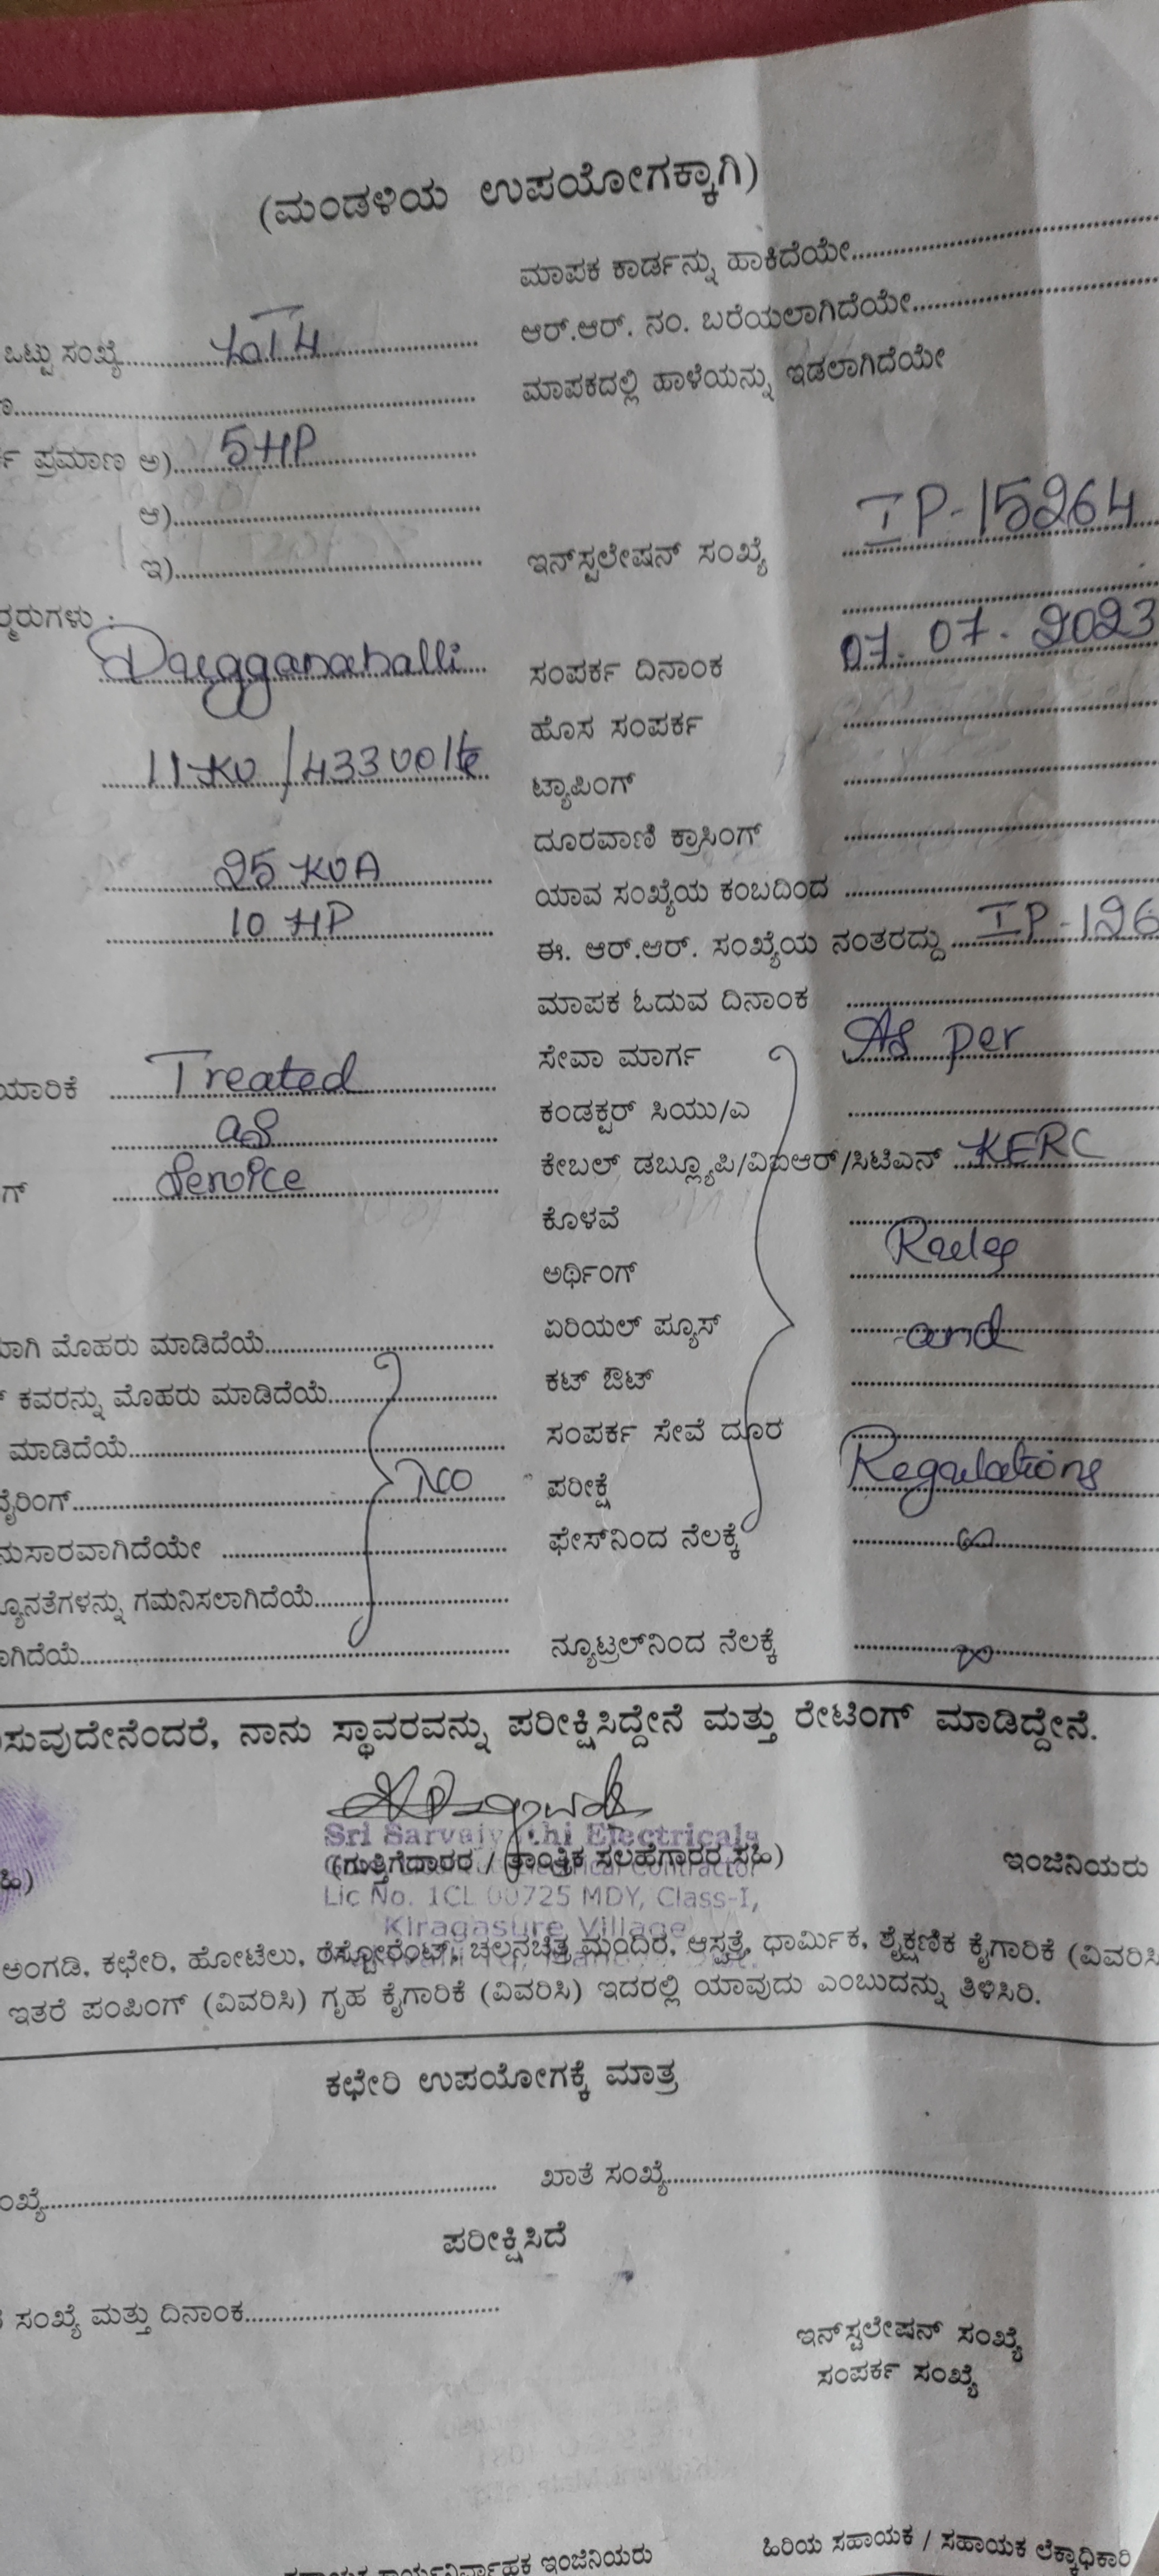 (ಮಂಡಳಿಯ ಉಪಯೋಗಕ್ಕಾಗಿ)
ಮಾಪಕ ಕಾರ್ಡನ್ನು ಹಾಕಿದೆಯೇ
ಒಟ್ಟು ಸಂಖ್ಯೆ
ಆರ್.ಆರ್. ನಂ. ಬರೆಯಲಾಗಿದೆಯೇ
ಮಾಪಕದಲ್ಲಿ ಹಾಳೆಯನ್ನು ಇಡಲಾಗಿದೆಯೇ
ಪ್ರಮಾಣ ಅ) 5 HP
ಆ)
ಇ)
ಇನ್‌ಸ್ಟಲೇಷನ್ ಸಂಖ್ಯೆ IP-15264
Dugganahalli
ಸಂಪರ್ಕ ದಿನಾಂಕ 07.07.2023
ಹೊಸ ಸಂಪರ್ಕ
11 KV / 433 volts
ಟ್ಯಾಪಿಂಗ್
ದೂರವಾಣಿ ಕ್ರಾಸಿಂಗ್
25 KVA
ಯಾವ ಸಂಖ್ಯೆಯ ಕಂಬದಿಂದ
10 HP
ಈ. ಆರ್.ಆರ್. ಸಂಖ್ಯೆಯ ನಂತರದ್ದು IP-126
ಮಾಪಕ ಓದುವ ದಿನಾಂಕ
Treated
ಸೇವಾ ಮಾರ್ಗ As per
as
ಕಂಡಕ್ಟರ್ ಸಿಯು/ಎ
Service
ಕೇಬಲ್ ಡಬ್ಲ್ಯೂಪಿ/ವಿಐಆರ್/ಸಿಟಿಎನ್ KERC
ಕೊಳವೆ
ಅರ್ಥಿಂಗ್ Rules
ಮೊಹರು ಮಾಡಿದೆಯೆ
ಏರಿಯಲ್ ಪ್ಯೂಸ್ and
ಕವರನ್ನು ಮೊಹರು ಮಾಡಿದೆಯೆ
ಕಟ್ ಔಟ್
ಮಾಡಿದೆಯೆ
ಸಂಪರ್ಕ ಸೇವೆ ದೂರ
No
ಪರೀಕ್ಷೆ Regulations
ಫೇಸ್‌ನಿಂದ ನೆಲಕ್ಕೆ ∞
ಗಮನಿಸಲಾಗಿದೆಯೆ
ನ್ಯೂಟ್ರಲ್‌ನಿಂದ ನೆಲಕ್ಕೆ ∞
ನಾನು ಸ್ಥಾವರವನ್ನು ಪರೀಕ್ಷಿಸಿದ್ದೇನೆ ಮತ್ತು ರೇಟಿಂಗ್ ಮಾಡಿದ್ದೇನೆ.
Sri Sarvajyothi Electricals
(ಗುತ್ತಿಗೆದಾರರ / ತಾಂತ್ರಿಕ ಸಲಹೆಗಾರರ ಸಹಿ) ಇಂಜಿನಿಯರು
Lic No. 1CL 00725 MDY, Class-I,
Kiragasure Village
ಅಂಗಡಿ, ಕಛೇರಿ, ಹೋಟೆಲು, ರೆಸ್ಟೋರೆಂಟ್, ಚಲನಚಿತ್ರ ಮಂದಿರ, ಆಸ್ಪತ್ರೆ, ಧಾರ್ಮಿಕ, ಶೈಕ್ಷಣಿಕ ಕೈಗಾರಿಕೆ
ಇತರೆ ಪಂಪಿಂಗ್ (ವಿವರಿಸಿ) ಗೃಹ ಕೈಗಾರಿಕೆ (ವಿವರಿಸಿ) ಇದರಲ್ಲಿ ಯಾವುದು ಎಂಬುದನ್ನು ತಿಳಿಸಿರಿ.
ಕಛೇರಿ ಉಪಯೋಗಕ್ಕೆ ಮಾತ್ರ
ಖಾತೆ ಸಂಖ್ಯೆ
ಪರೀಕ್ಷಿಸಿದೆ
ಸಂಖ್ಯೆ ಮತ್ತು ದಿನಾಂಕ
ಇನ್‌ಸ್ಟಲೇಷನ್ ಸಂಖ್ಯೆ
ಸಂಪರ್ಕ ಸಂಖ್ಯೆ
ಇಂಜಿನಿಯರು ಹಿರಿಯ ಸಹಾಯಕ / ಸಹಾಯಕ ಲೆಕ್ಕಾಧಿಕಾರಿ